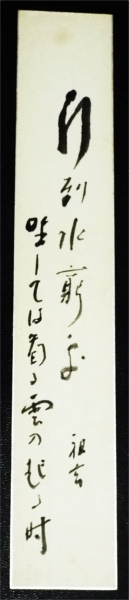 行到水窮処
坐しては看る雲の起る時
祖吉